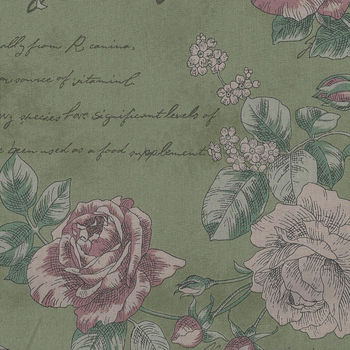 ally from R canina,
source of vitamin C.
species have significant levels of
been used as a food supplement